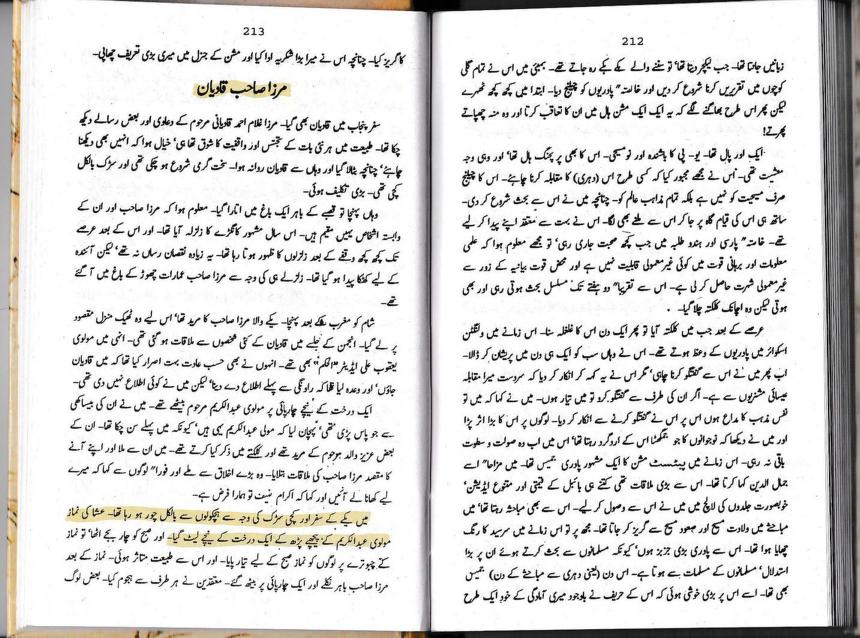 212
زبانیں جانتا تھا۔ جب لیکچر دیتا تھا' تو سننے والے ہکے بکے رہ جاتے تھے۔ بمبئی میں اس نے تمام گلی
کوچوں میں تقریریں کرنا شروع کر دیں اور خاصتہ" پادریوں کو چیلنج دیا۔ ابتدا میں کچھ کچھ ٹھہرے
لیکن پھر اس طرح بھاگنے لگے کہ یہ ایک ایک مشن ہال میں ان کا تعاقب کرتا اور وہ منہ چھپاتے
پھرتے!
ایک اور پال تھا۔ یو۔ پی کا باشندہ اور نو مسیحی۔ اس کا بھی پر پھنگ ہال تھا' اور وہی وجہ
معیشت تھی۔ اس نے مجھے مجبور کیا کہ کسی طرح اس (دہری) کا مقابلہ کرنا چاہئے۔ اس کا چیلنج
صرف مسیحیت کو نہیں ہے بلکہ تمام مذاہب عالم کو۔ چنانچہ میں نے اس سے بحث شروع کر دی۔
ساتھ ہی اس کی قیام گاہ پر جا کر اس سے ملنے بھی لگا۔ اس نے بہت سے معتقد اپنے پیدا کر لیے
تھے۔ خاصتہ" پارسی اور ہندو طلبہ میں جب کچھ صحبت جاری رہی' تو مجھے معلوم ہوا کہ علمی
معلومات اور برہانی قوت میں کوئی غیر معمولی قابلیت نہیں ہے اور محض قوت بیانیہ کے زور سے
غیر معمولی شہرت حاصل کر لی ہے۔ اس سے تقریبا" دو ہفتے تک مسلسل بحث ہوتی رہی اور بھی
ہوتی لیکن وہ اچانک کلکتہ چلا گیا۔
عرصے کے بعد جب میں کلکتہ آیا تو پھر ایک دن اس کا غلغلہ سنا۔ اس زمانے میں ولنگٹن
اسکوائر میں پادریوں کے وعظ ہوتے تھے۔ اس نے وہاں سب کو ایک ہی دن میں پریشان کر ڈالا۔
اب پھر میں نے اس سے گفتگو کرنا چاہی' مگر اس نے یہ کہہ کر انکار کر دیا کہ سردست میرا مقابلہ
عیسائی مشنریوں سے ہے۔ اگر ان کی طرف سے گفتگو کرو تو میں تیار ہوں۔ میں نے کہا کہ میں تو
نفس مذہب کا مداح ہوں اس پر اس نے گفتگو کرنے سے انکار کر دیا۔ لوگوں پر اس کا بڑا اثر پڑا
اور میں نے دیکھا کہ نوجوانوں کا جو جمگھٹا اس کے اردگرد رہتا تھا' اس میں اب وہ صولت و سطوت
باقی نہ رہی۔ اس زمانے میں بپٹسٹ مشن کا ایک مشہور پادری جیمس تھا۔ میں مزاحا" اسے
جمال الدین کہا کرتا تھا۔ اس سے بڑی ملاقات تھی کتنے ہی بائبل کے قیمتی اور متنوع ایڈیشن'
خوبصورت جلدوں کی لالچ میں میں نے اس سے وصول کر لیے۔ اس سے بھی مباحثہ رہتا تھا' میں
مباحثے میں ولادت مسیح اور صعود مسیح سے گریز کر جاتا تھا۔ مجھ پر تو اس زمانے میں سرسید کا رنگ
چھایا ہوا تھا۔ اس سے پادری بڑی جزبز ہوتے' کیونکہ مسلمانوں سے بحث کرتے ہوئے ان پر بڑا
استدلال' مسلمانوں کے مسلمات سے ہوتا ہے۔ اس دن (یعنی دہری سے مباحثے کے دن) جیمس
بھی تھا۔ اسے اس پر بڑی خوشی ہوئی کہ اس کے حریف نے باوجود میری آمادگی کے خود ایک طرح
213
کا گریز کیا۔ چنانچہ اس نے میرا بڑا شکریہ ادا کیا اور مشن کے جنرل میں میری بڑی تعریف چھاپی۔
مرزا صاحب قادیان
سفر پنجاب میں قادیان بھی گیا۔ مرزا غلام احمد قادیانی مرحوم کے دعاوی اور بعض رسالے دیکھ
چکا تھا۔ طبیعت میں ہر نئی بات کے تجسس اور واقفیت کا شوق تھا ہی' خیال ہوا کہ انہیں بھی دیکھنا
چاہئے' چنانچہ بٹالا گیا اور وہاں سے قادیان روانہ ہوا۔ سخت گرمی شروع ہو چکی تھی اور سڑک بالکل
کچی تھی۔ بڑی تکلیف ہوئی۔
وہاں پہنچا تو قصبے کے باہر ایک باغ میں اتارا گیا۔ معلوم ہوا کہ مرزا صاحب اور ان کے
وابستہ اشخاص یہیں مقیم ہیں۔ اس سال مشہور کانگڑہ کا زلزلہ آیا تھا۔ اور اس کے بعد عرصے
تک کچھ کچھ وقفے کے بعد زلزلوں کا ظہور ہوتا رہا تھا۔ یہ زیادہ نقصان رساں نہ تھے' لیکن آئندہ
کے لیے کھٹکا پیدا ہو گیا تھا۔ زلزلے ہی کی وجہ سے مرزا صاحب عمارات چھوڑ کے باغ میں آ گئے
تھے۔
شام کو مغرب بعد پہنچا۔ یکے والا مرزا صاحب کا مرید تھا' اس لیے وہ ٹھیک منزل مقصود
پر لے گیا۔ انجمن کے جلسے میں قادیان کے کئی شخصوں سے ملاقات ہو گئی تھی۔ انہی میں مولوی
یعقوب علی ایڈیٹر "الحکم" بھی تھے۔ انہوں نے بھی حسب عادت بہت اصرار کیا تھا کہ میں قادیان
جاؤں' اور وعدہ لیا تھا کہ روانگی سے پہلے اطلاع دے دینا' لیکن میں نے کوئی اطلاع نہیں دی تھی۔
ایک درخت کے نیچے چارپائی پر مولوی عبدالکریم مرحوم بیٹھے تھے۔ میں نے ان کی بیساکھی
سے جو پاس پڑی تھی' پہچان لیا کہ مولی عبدالکریم یہی ہیں' کیونکہ میں پہلے سن چکا تھا۔ ان کے
بعض عزیز والد مرحوم کے مرید تھے اور کلکتے میں ذکر کیا کرتے تھے۔ میں ان سے ملا اور اپنے آنے
کا مقصد مرزا صاحب کی ملاقات بتلایا۔ وہ بڑے اخلاق سے ملے اور فورا" لوگوں سے کہا کہ میرے
لیے کھانا لے آئیں اور کہا کہ اکرام ضیف تو ہمارا فرض ہے۔
میں یکے کے سفر اور کچی سڑک کی وجہ سے ہچکولوں سے بالکل چور ہو رہا تھا۔ عشا کی نماز
مولوی عبدالکریم کے پیچھے پڑھ کے ایک درخت کے نیچے لیٹ گیا۔ اور صبح کو چار بجے اٹھا' تو نماز
کے چبوترے پر لوگوں کو نماز صبح کے لیے تیار پایا۔ اور اس سے طبیعت متاثر ہوئی۔ نماز کے بعد
مرزا صاحب باہر نکلے اور ایک چارپائی پر بیٹھ گئے۔ معتقدین نے ہر طرف سے ہجوم کیا۔ بعض لوگ